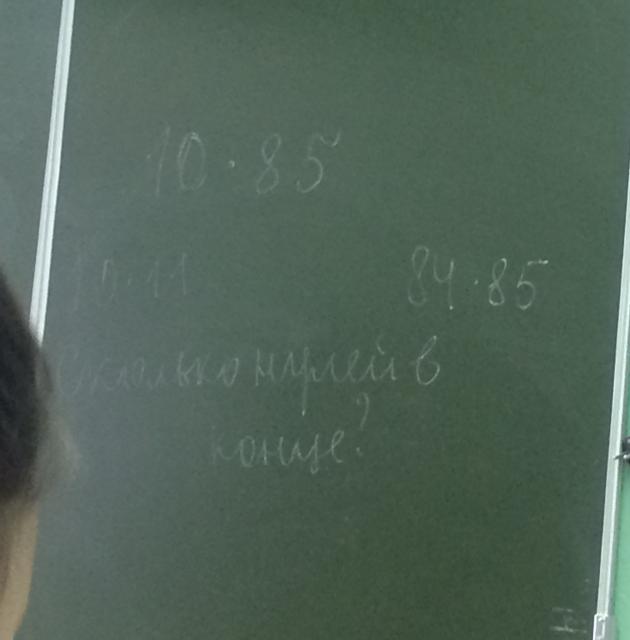 10·85
10·11 84·85
сколько нулей в
конце?